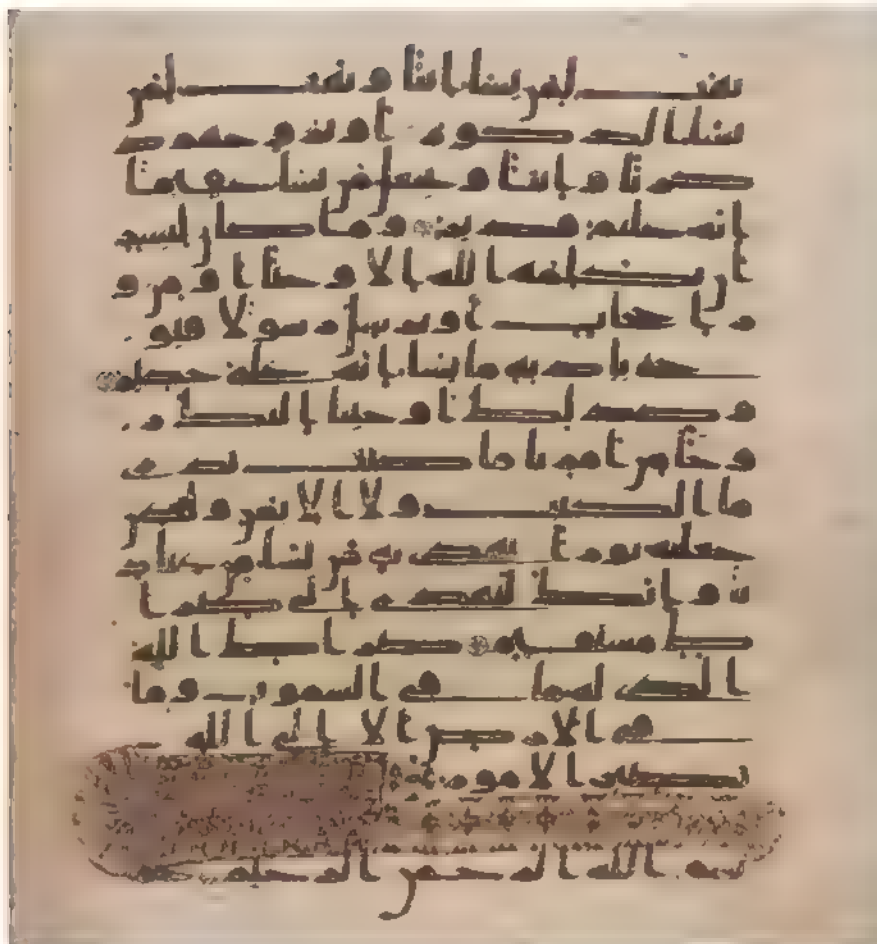 يهب لمن يشا انثا و يهب لمن
يشا الذكور او يزوجهم ذ
كرنا و انثا و يجعل من يشا عقيما
انه عليم قدير و ما كان لبشر
ان يكلمه الله الا وحيا او من و
را حجاب او يرسل رسولا فيو
حي باذنه ما يشا انه علي حكيم
و كذلك اوحينا اليك ر
وحا من امرنا ما كنت تدري
ما الكتب ولا الايمن ولكن
جعلنه نورا نهدي به من نشا من عباد
نا و انك لتهدي الى صرا
ط مستقيم صراط الله
الذي له ما في السموت وما
في الارض الا الى الله
تصير الامور
بسم الله الرحمن الرحيم